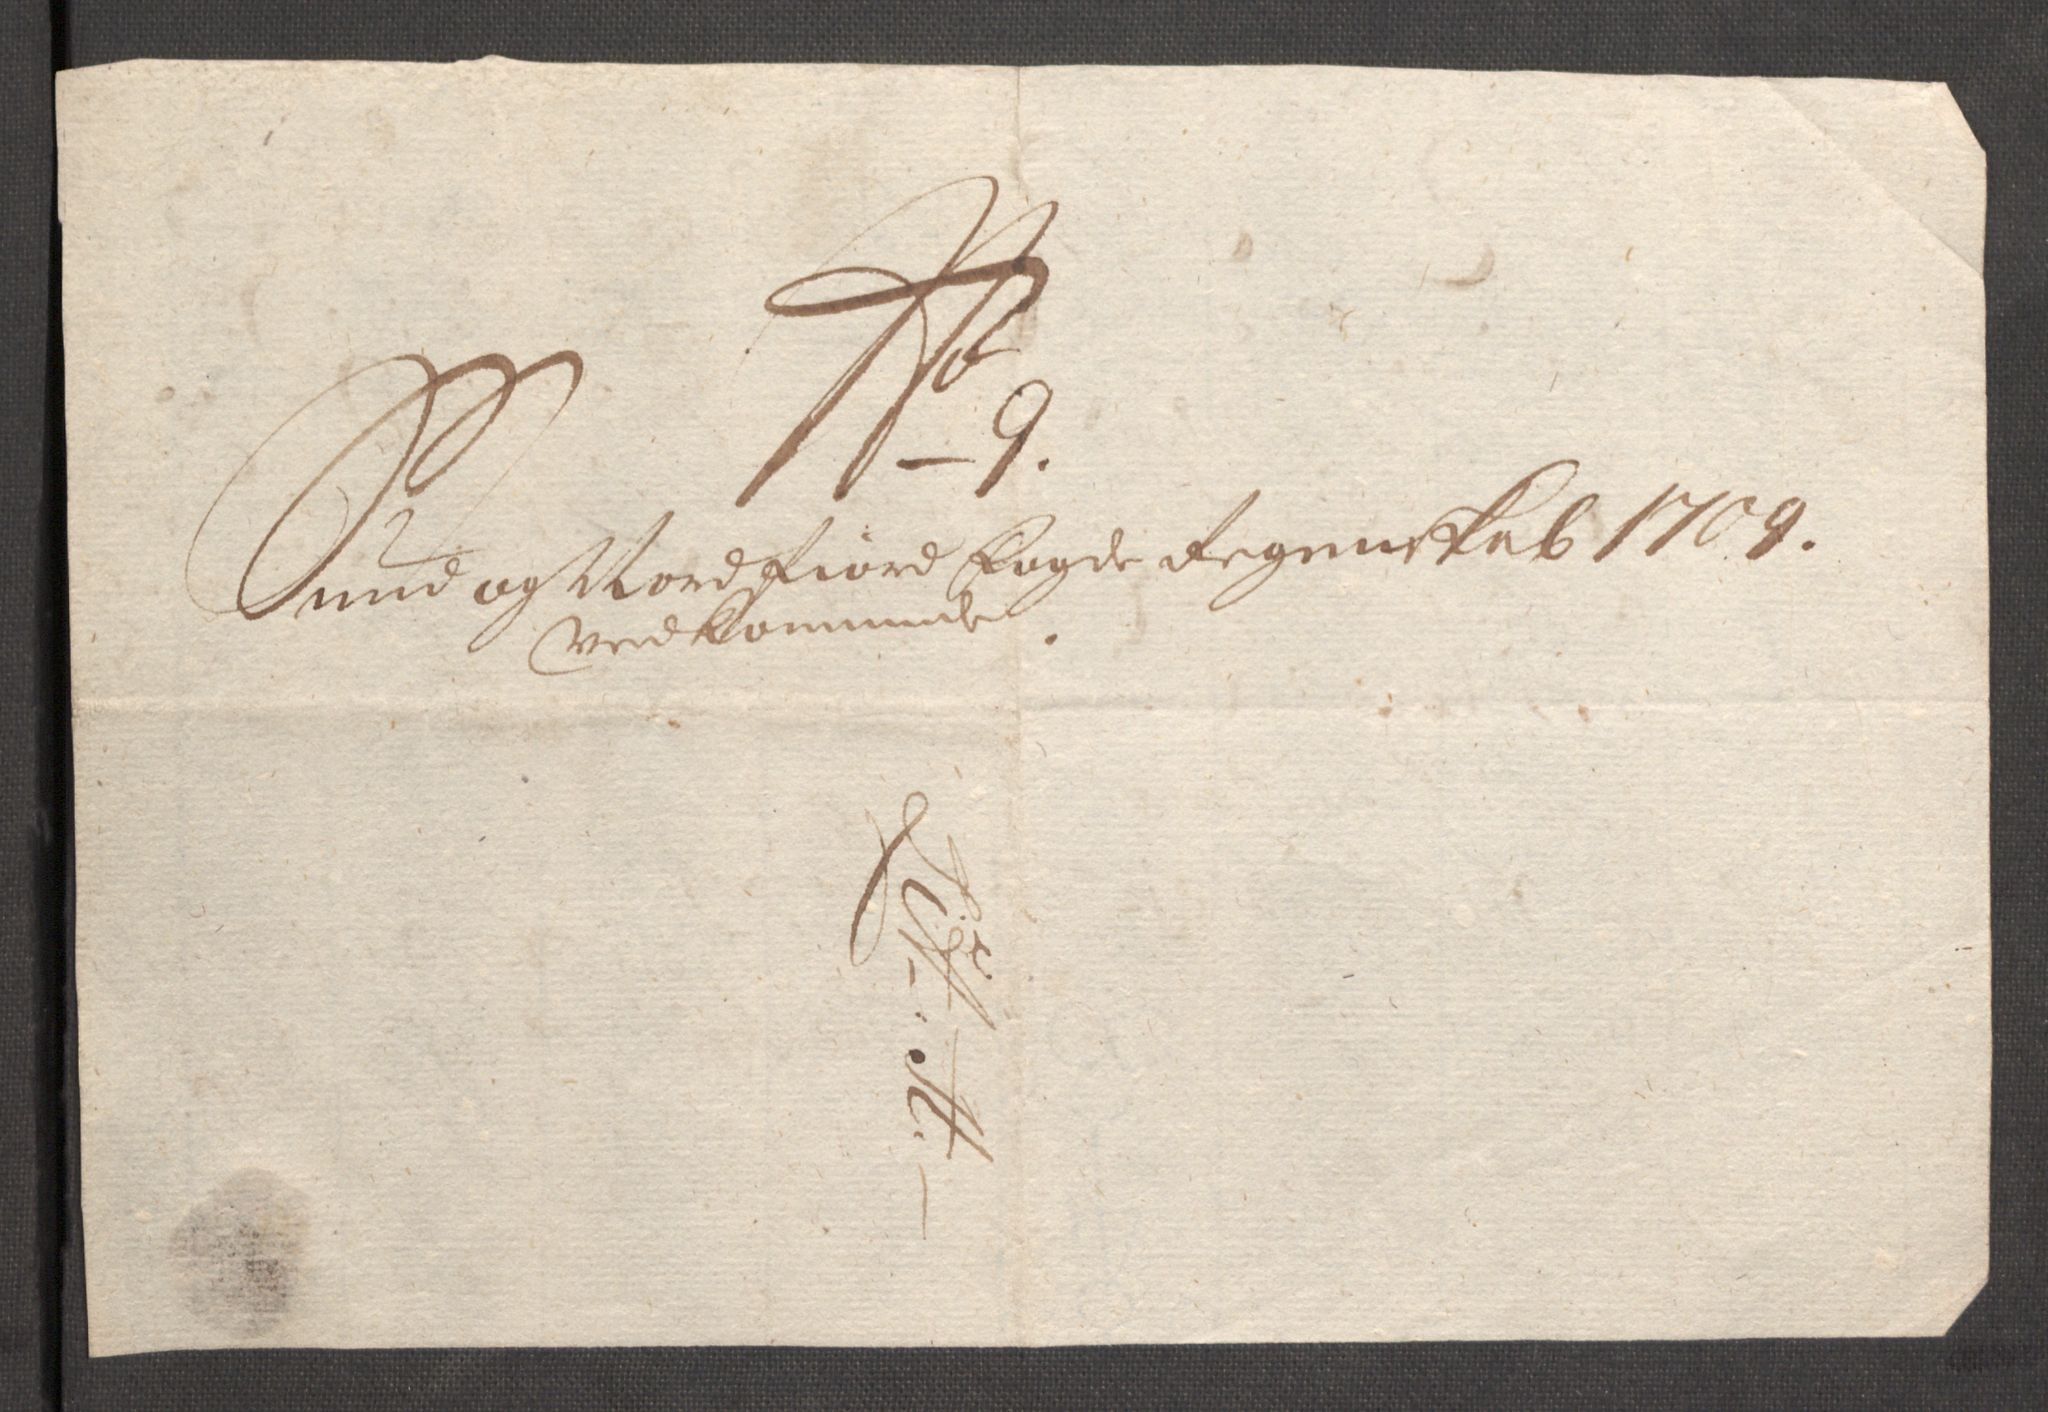 No
9.
Sund og Nordfiord Fogderegenskab 1709.
vedkommende.